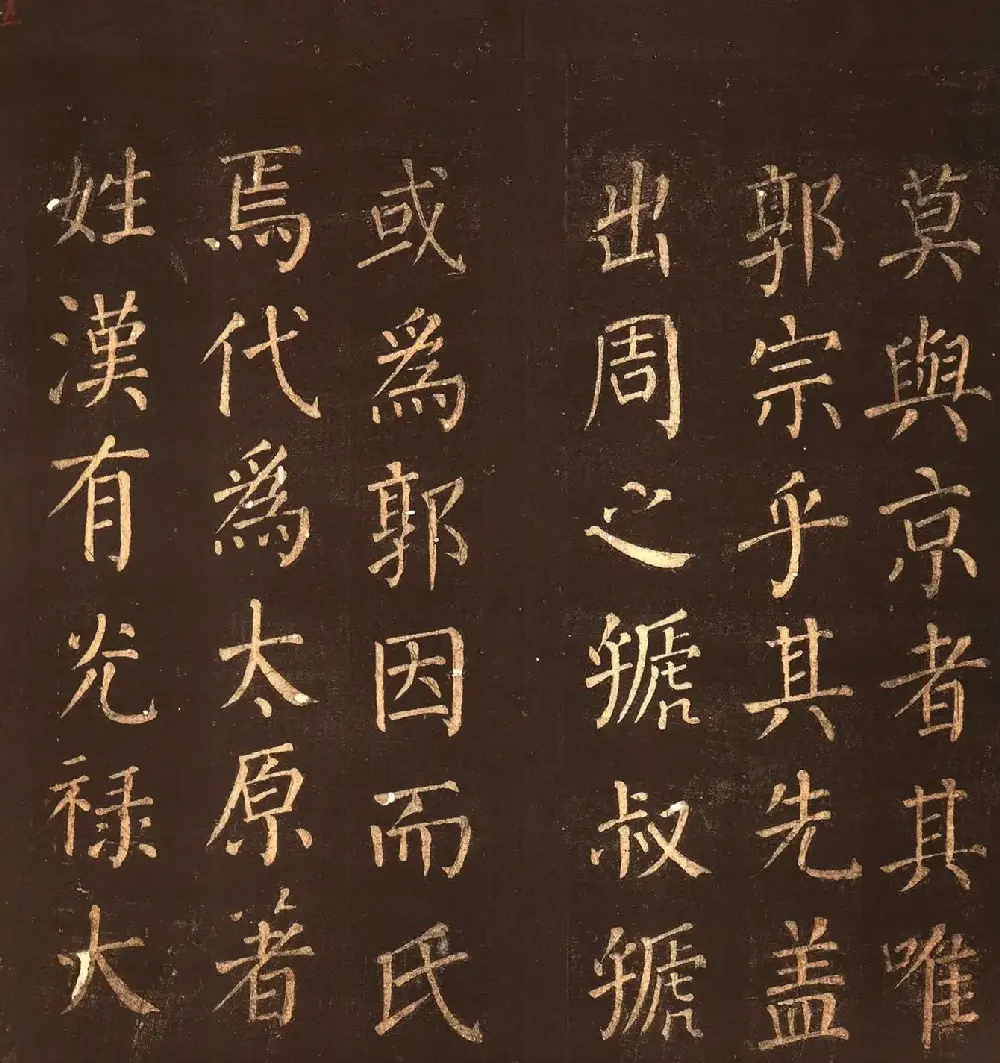 莫與京者其唯
郭宗乎其先盖
出周之虢叔虢
或爲郭因而氏
焉代爲太原著
姓漢有光禄大